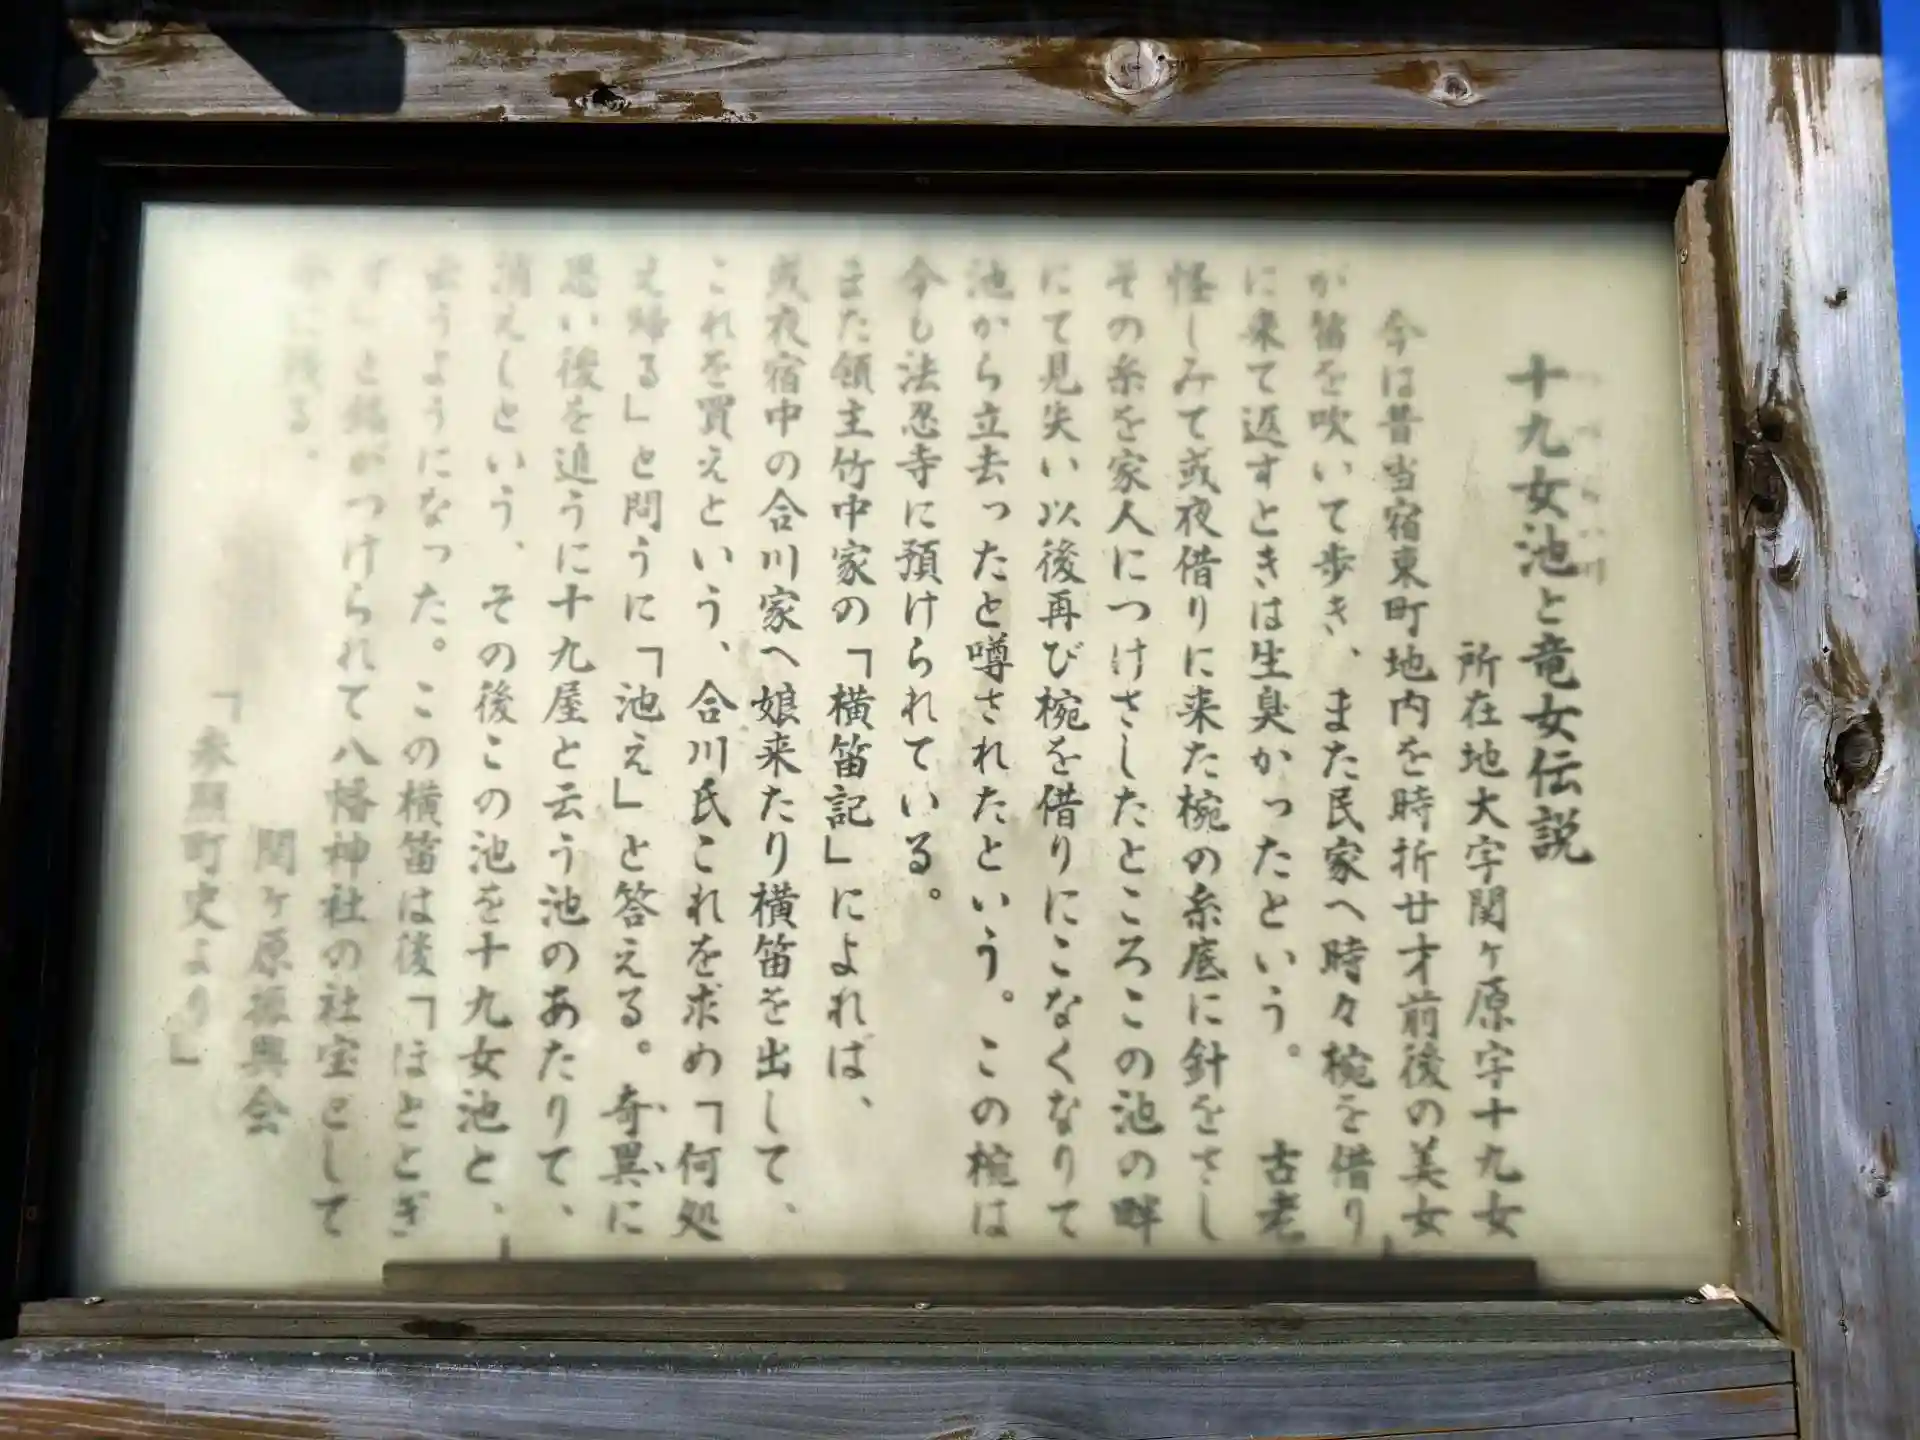 十九女池と竜女伝説
所在地大字関ヶ原字十九女
今は昔当宿東町地内を時折廿才前後の美女
が笛を吹いて歩き、また民家へ時々椀を借り
に来て返すときは生臭かったという。 古老
怪しみて或夜借りに来た椀の糸底に針をさし
その糸を家人につけさしたところこの池の畔
にて見失い以後再び椀を借りにこなくなりて
池から立去ったと噂されたという。この椀は
今も法忍寺に預けられている。
また領主竹中家の「横笛記」によれば、
或夜宿中の合川家へ娘来たり横笛を出して、
これを買えという、合川氏これを求め「何処
え帰る」と問うに「池え」と答える。奇異に
思い後を追うに十九屋と云う池のあたりて、
消えしという、その後この池を十九女池と、
云うようになった。この横笛は後「ほととぎ
す」と銘がつけられて八幡神社の社宝として
に残る、
関ヶ原振興会
「参照町史より」